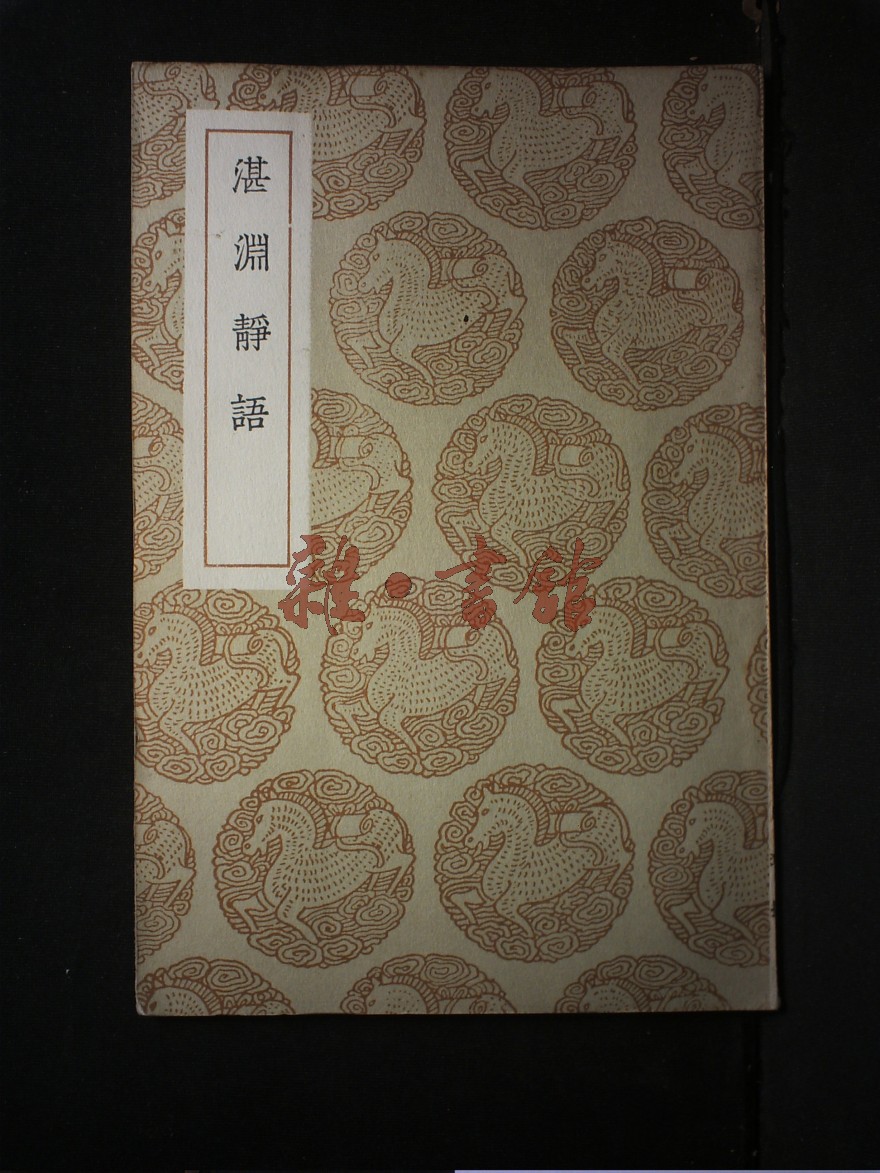 湛淵靜語
雜·書館